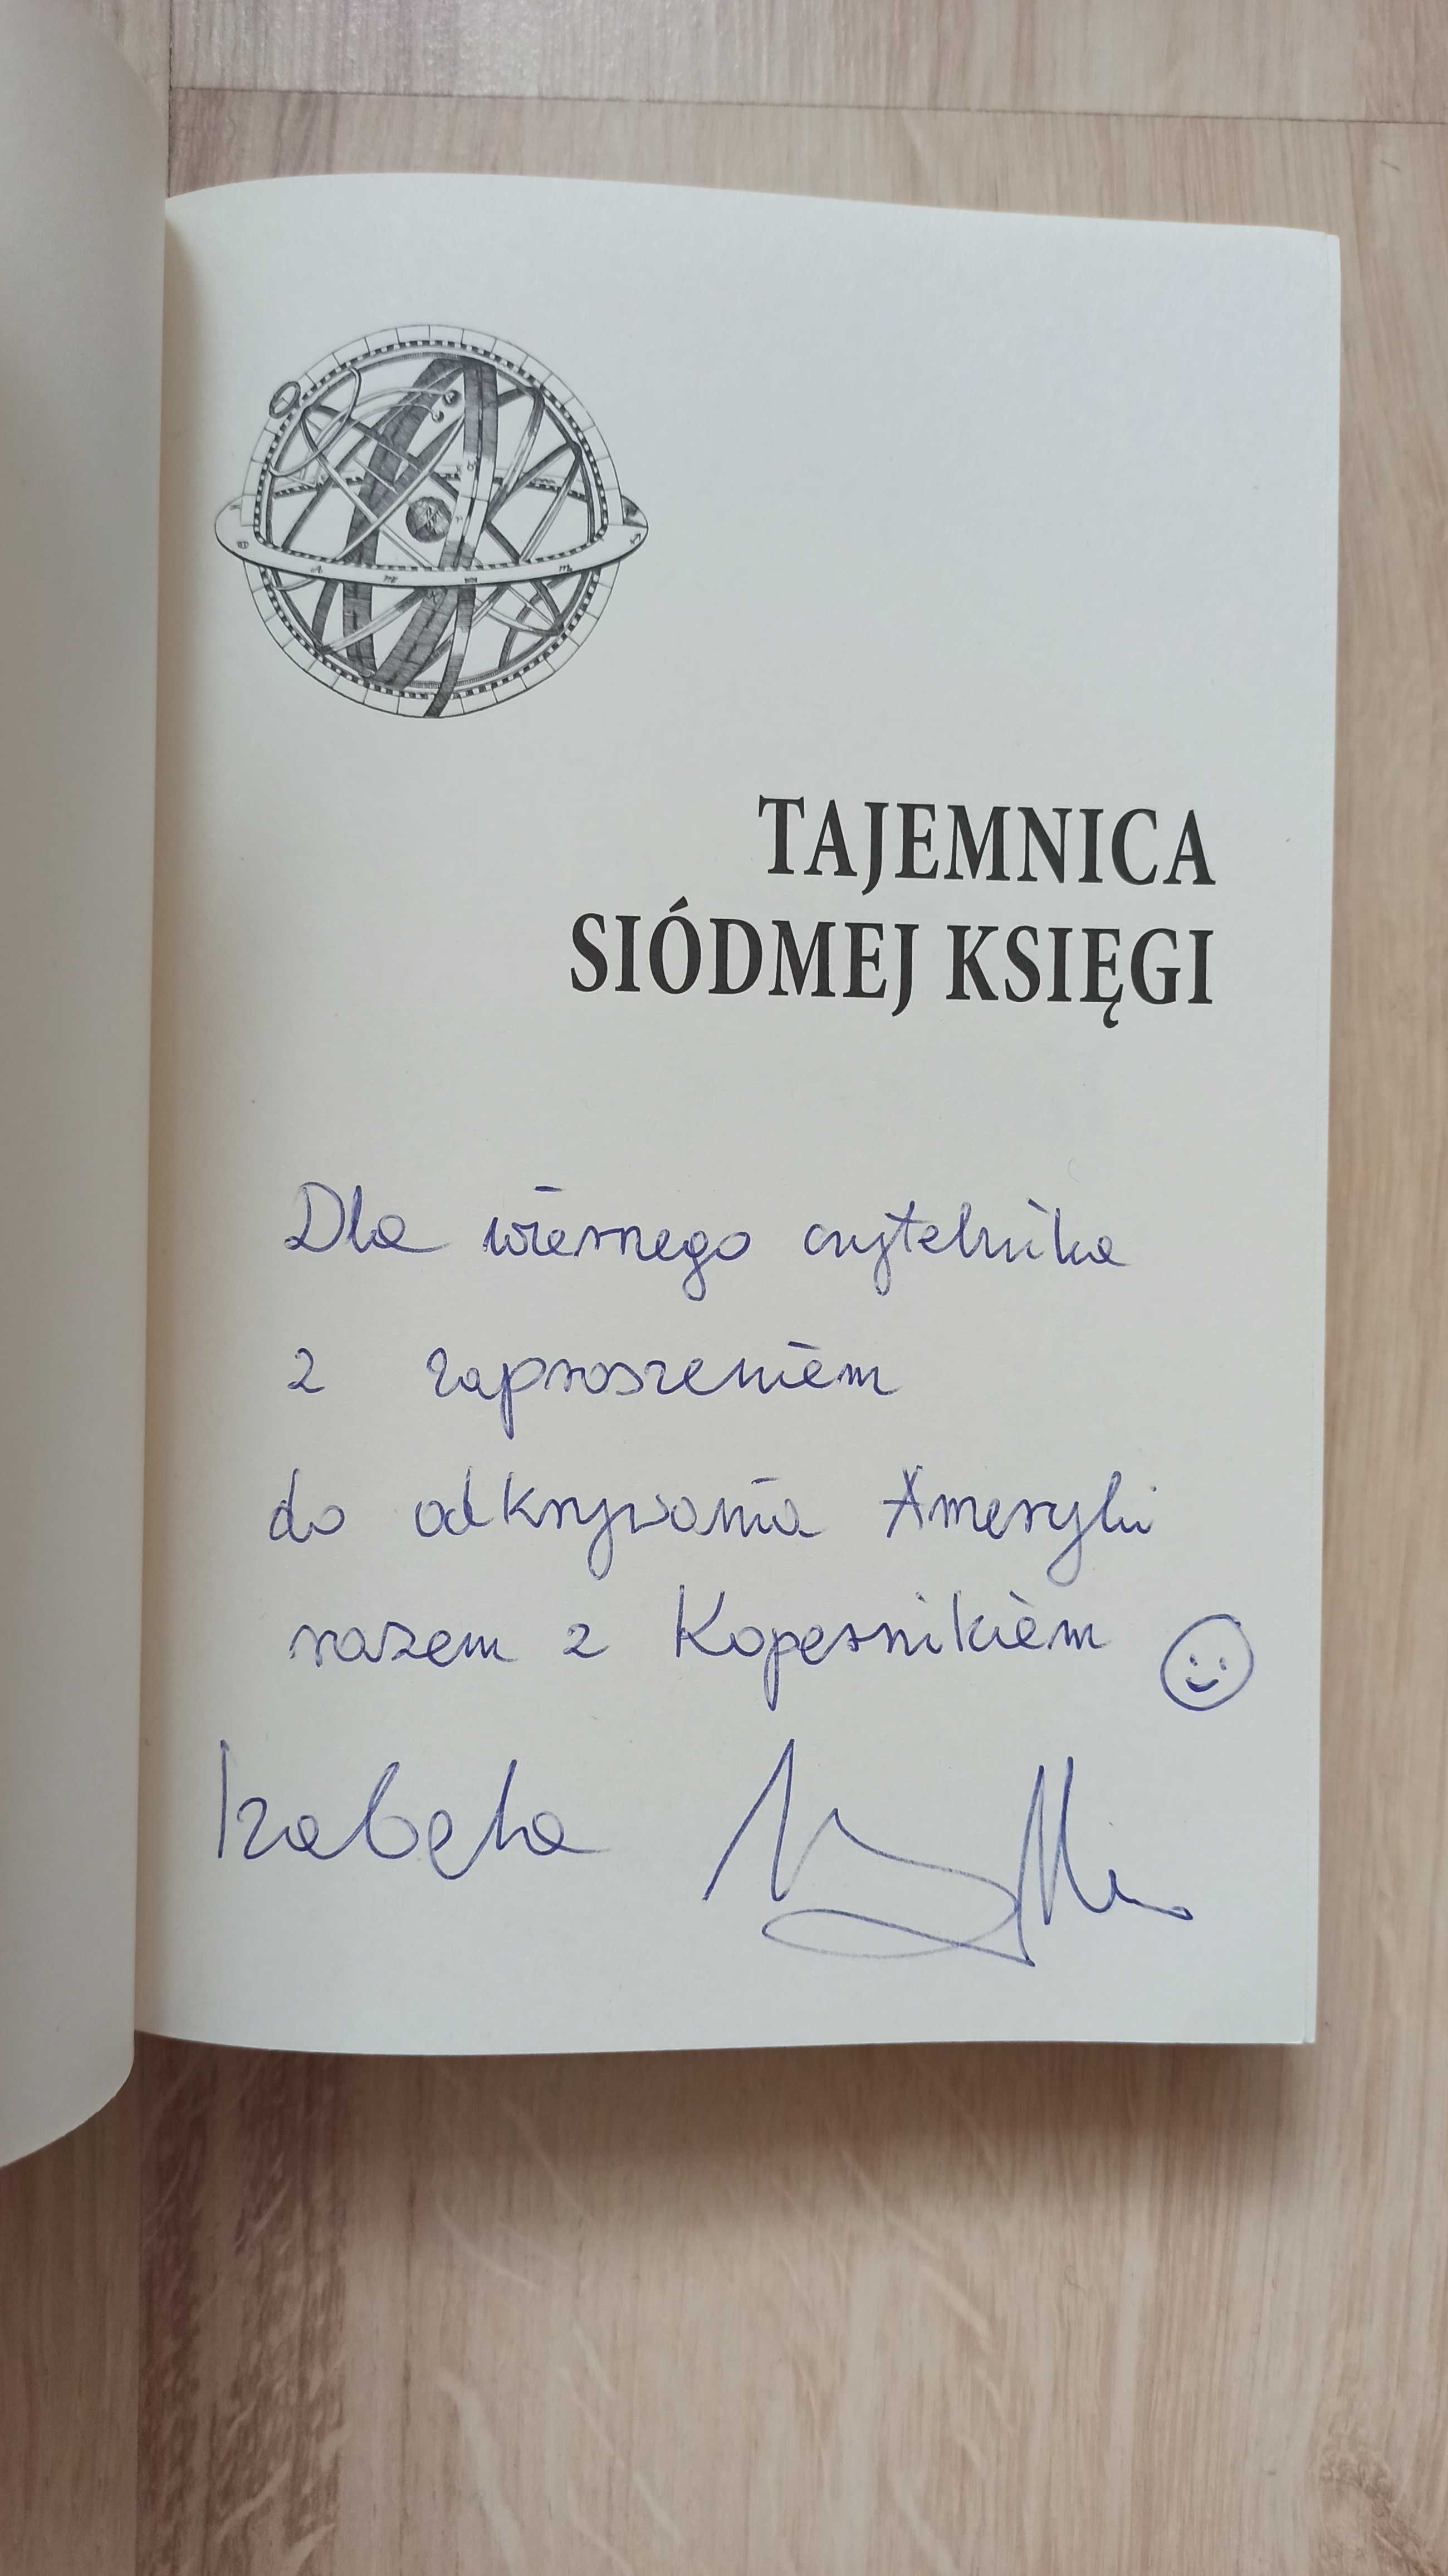 TAJEMNICA
SIÓDMEJ KSIĘGI
Dla wiernego czytelnika
z zaproszeniem
do odkrywania Ameryki
razem z Kopernikiem
Izabela